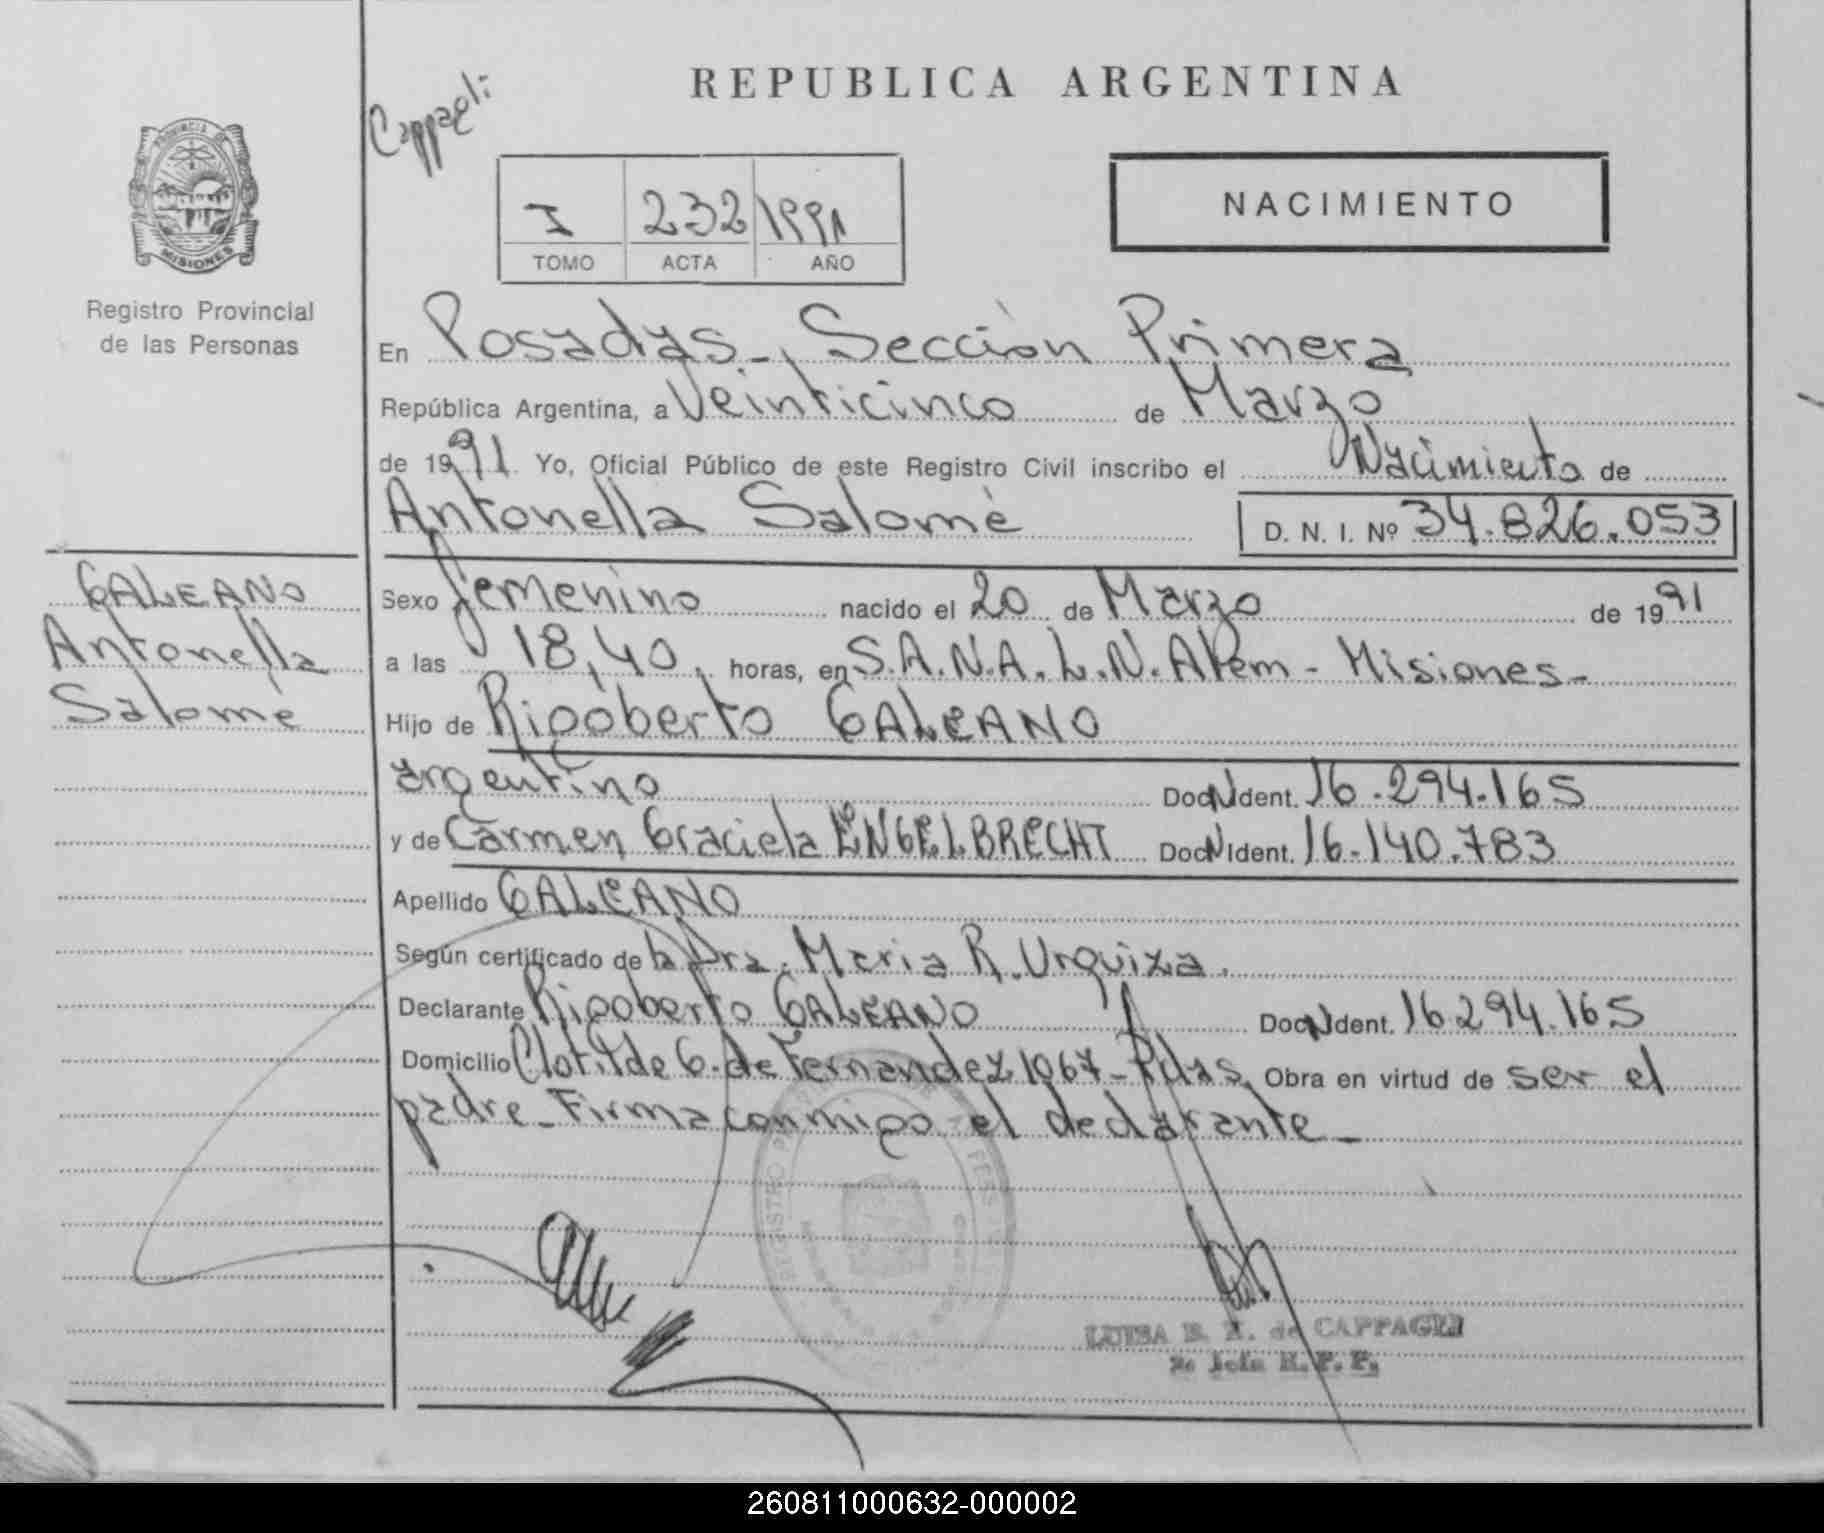 Cappagli
REPUBLICA ARGENTINA
PROVINCIA DE
MISIONES
Registro Provincial
de las Personas
I 232 1991
TOMO ACTA AÑO
NACIMIENTO
En Posadas-, Sección Primera
República Argentina, a Veinticinco de Marzo
de 1991 Yo, Oficial Público de este Registro Civil inscribo el Nacimiento de
Antonella Salomé D. N. I. Nº 34.826.053
GALEANO
Antonella
Salome
Sexo femenino nacido el 20 de Marzo de 1991
a las 18,40, horas, en S.A.N.A. L.N. Alem - Misiones-
Hijo de Rigoberto GALEANO
argentino Doc N Ident. 16.294.165
y de Carmen Graciela ENGELBRECHT Doc N Ident. 16.140.783
Apellido GALEANO
Según certificado de la Dra. Maria R. Urquiza.
Declarante Rigoberto GALEANO Doc N Ident. 16294.165
Domicilio Clotilde G. de Fernandez 1067- Pdas. Obra en virtud de ser el
padre- Firma conmigo el declarante-
LUISA de CAPPAGLI
260811000632-000002